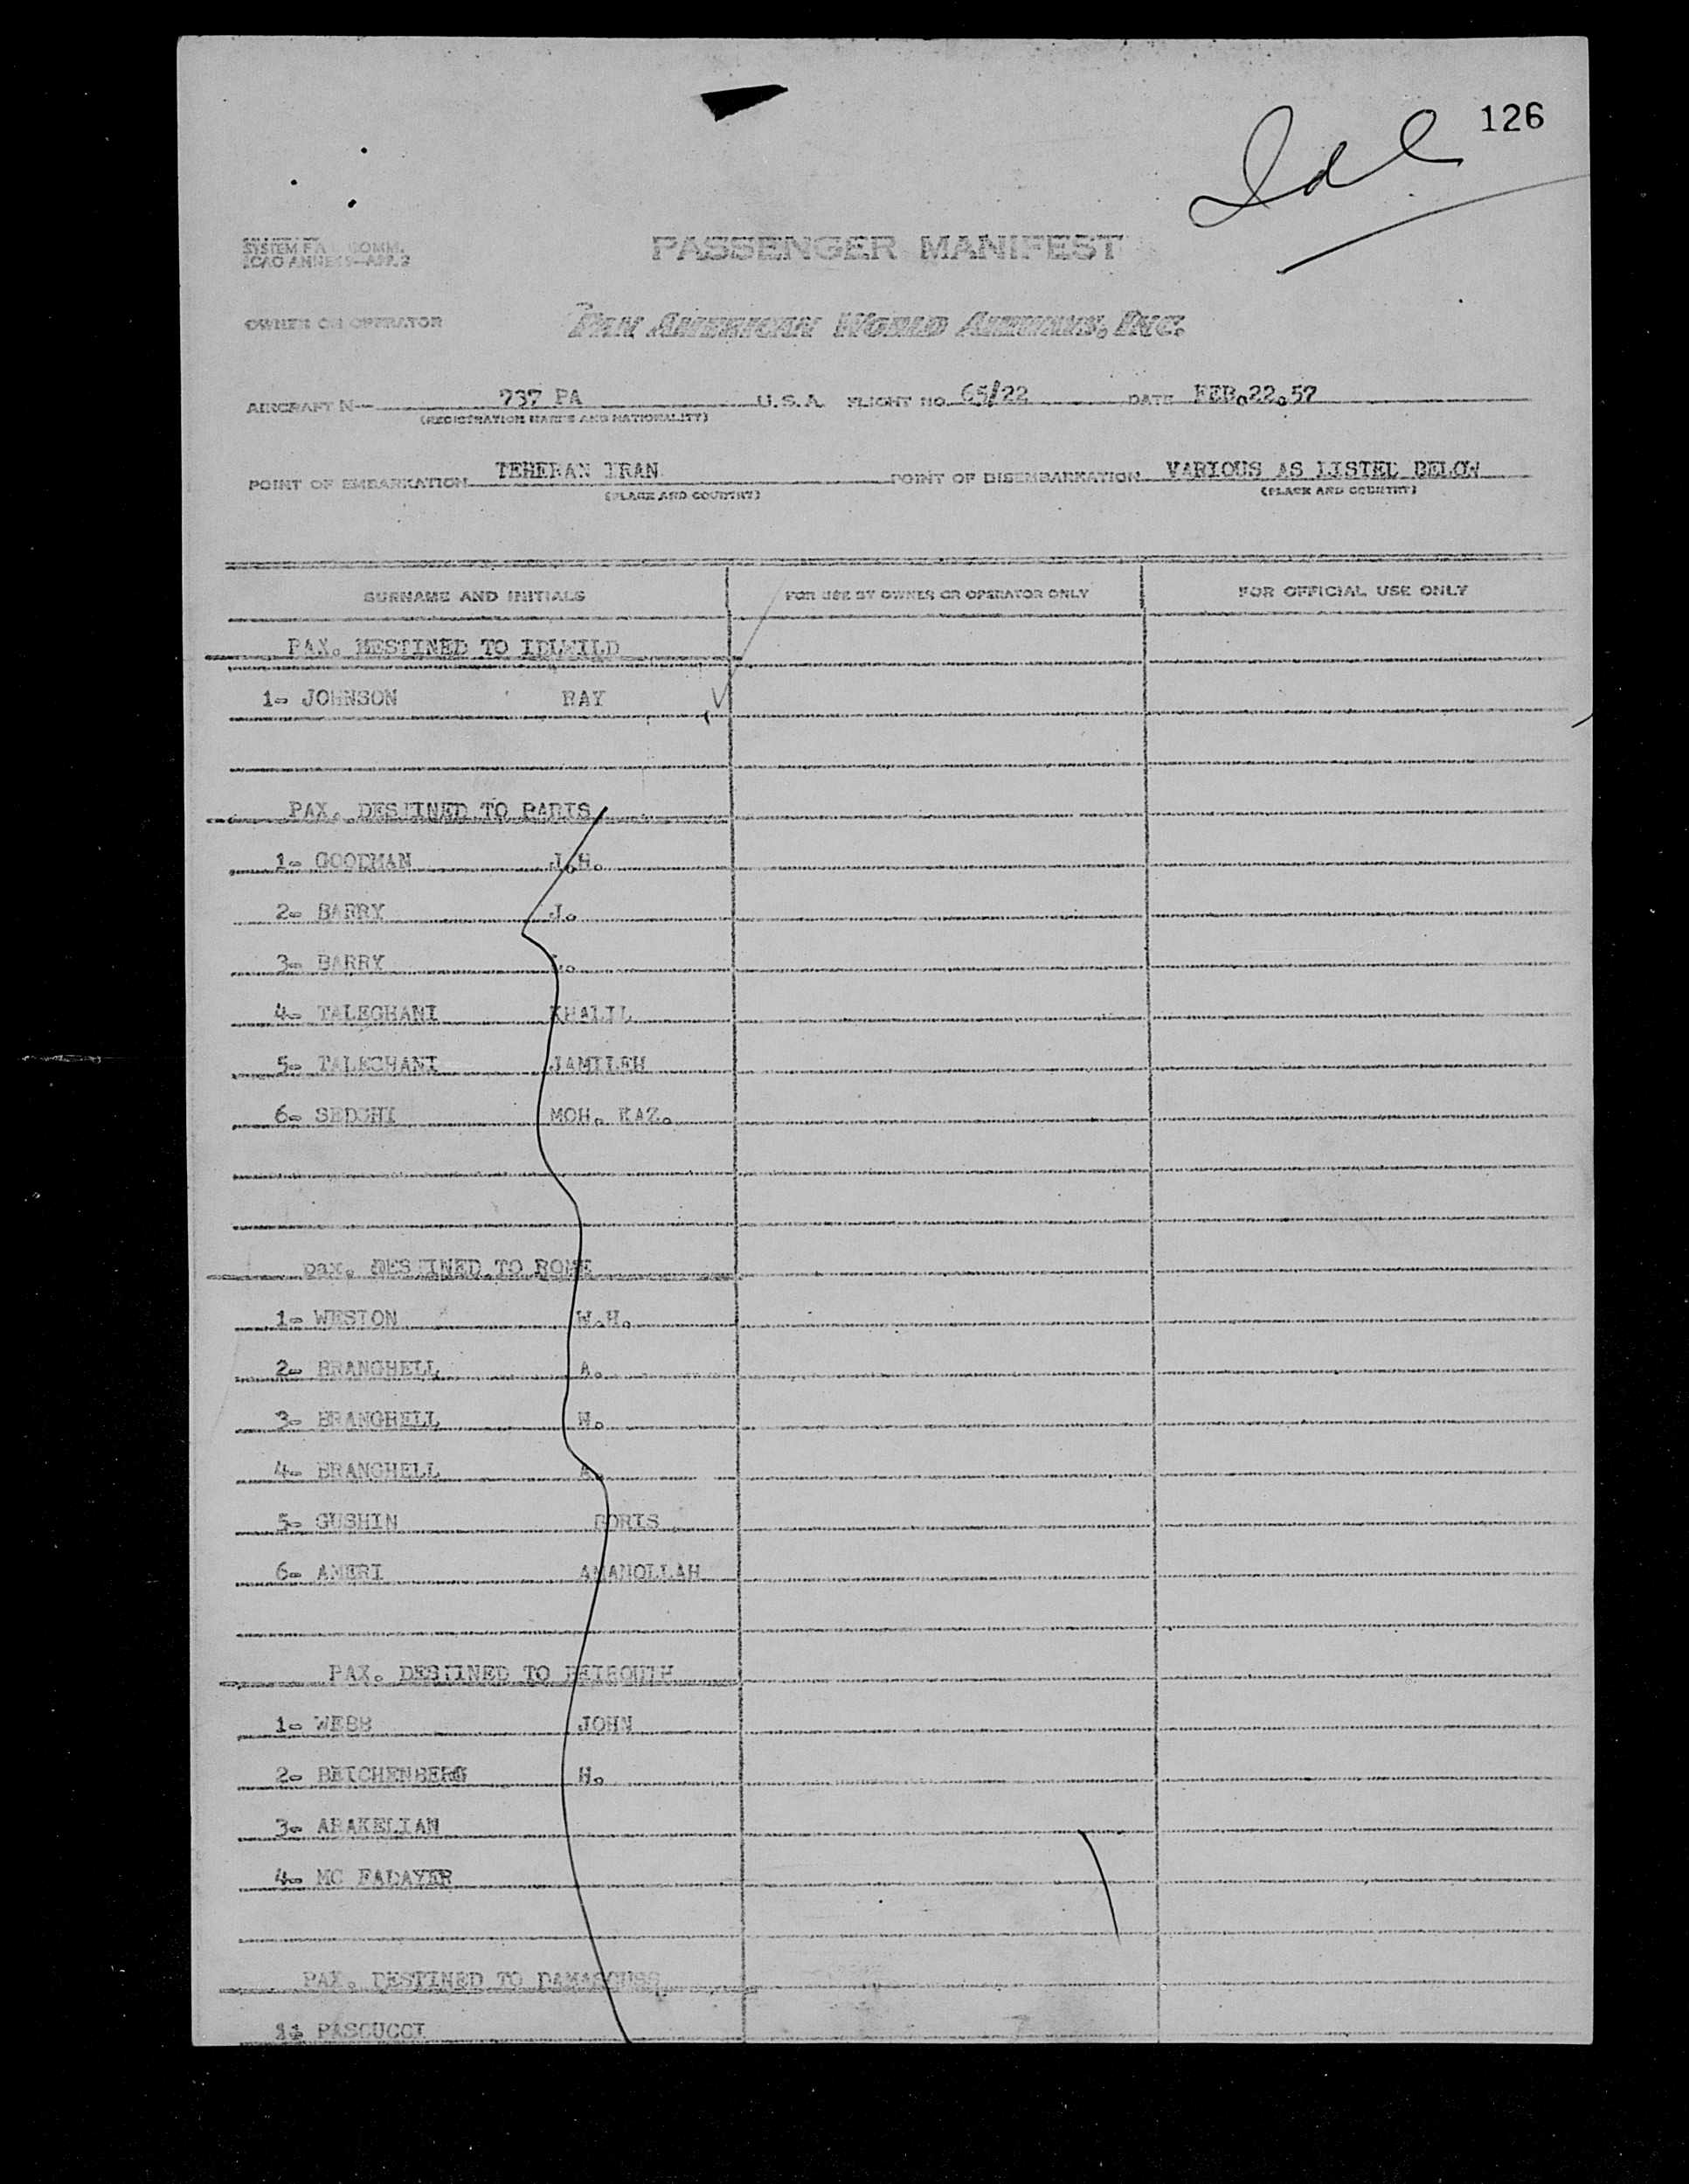 126
Idl
SYSTEM COMM.
ICAO ANNEX 9—APP. 3
PASSENGER MANIFEST
OWNER OR OPERATOR PAN AMERICAN WORLD AIRWAYS, INC.
AIRCRAFT N— 737 PA U.S.A. FLIGHT NO. 65/22 DATE FEB.22.57
(REGISTRATION MARKS AND NATIONALITY)
POINT OF EMBARKATION TEHERAN IRAN POINT OF DISEMBARKATION VARIOUS AS LISTED BELOW
(PLACE AND COUNTRY) (PLACE AND COUNTRY)
SURNAME AND INITIALS FOR USE BY OWNER OR OPERATOR ONLY FOR OFFICIAL USE ONLY
PAX. DESTINED TO IDLWILD
1- JOHNSON RAY
PAX. DESTINED TO PARIS
1- GOODMAN J.H.
2- BARRY J.
3- BARRY
4- TALEGHANI KHALIL
5- TALEGHANI JAMILEH
6- SEDGHI MOH. KAZ.
pax. DESTINED TO ROME
1- WESTON W.H.
2- BRANGHELL A.
3- BRANGHELL W.
4- BRANGHELL A.
5- GUSHIN BORIS
6- AMERI AMANOLLAH
PAX. DESTINED TO BEIROUTH
1- WEBB JOHN
2- BEICHENBERG H.
3- ARAKELIAN
4- MC FADAYER
PAX. DESTINED TO DAMASCUSS
1- PASCUCCI